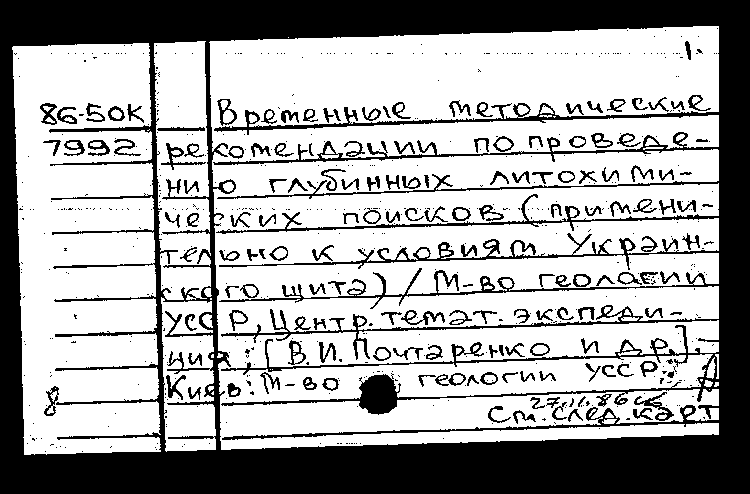 1.
86-50К Временные методические
7992 рекомендации по проведе-
нию глубинных литохими-
ческих поисков (примени-
тельно к условиям Украин-
ского щита) / М-во геологии
УССР, Центр. темат. экспеди-
ция; [В.И. Почтаренко и др.]. –
Киев: М-во геологии УССР;
8
См. след. карт